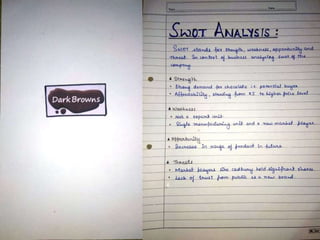 Dark Browns
SWOT ANALYSIS :
SWOT stands for strength, weakness, opportunity and
threat. In context of business analysing swot of the
company
Strength
Strong demand for chocolate i.e potential buyer
Affordability, starting from ₹5 to higher price level
Weakness
Not a export unit
Single manufacturing unit and a new market player
Opportunity
Increase in range of product in future
Threats
Market players like cadbury hold significant shares
Lack of trust from public as a new brand